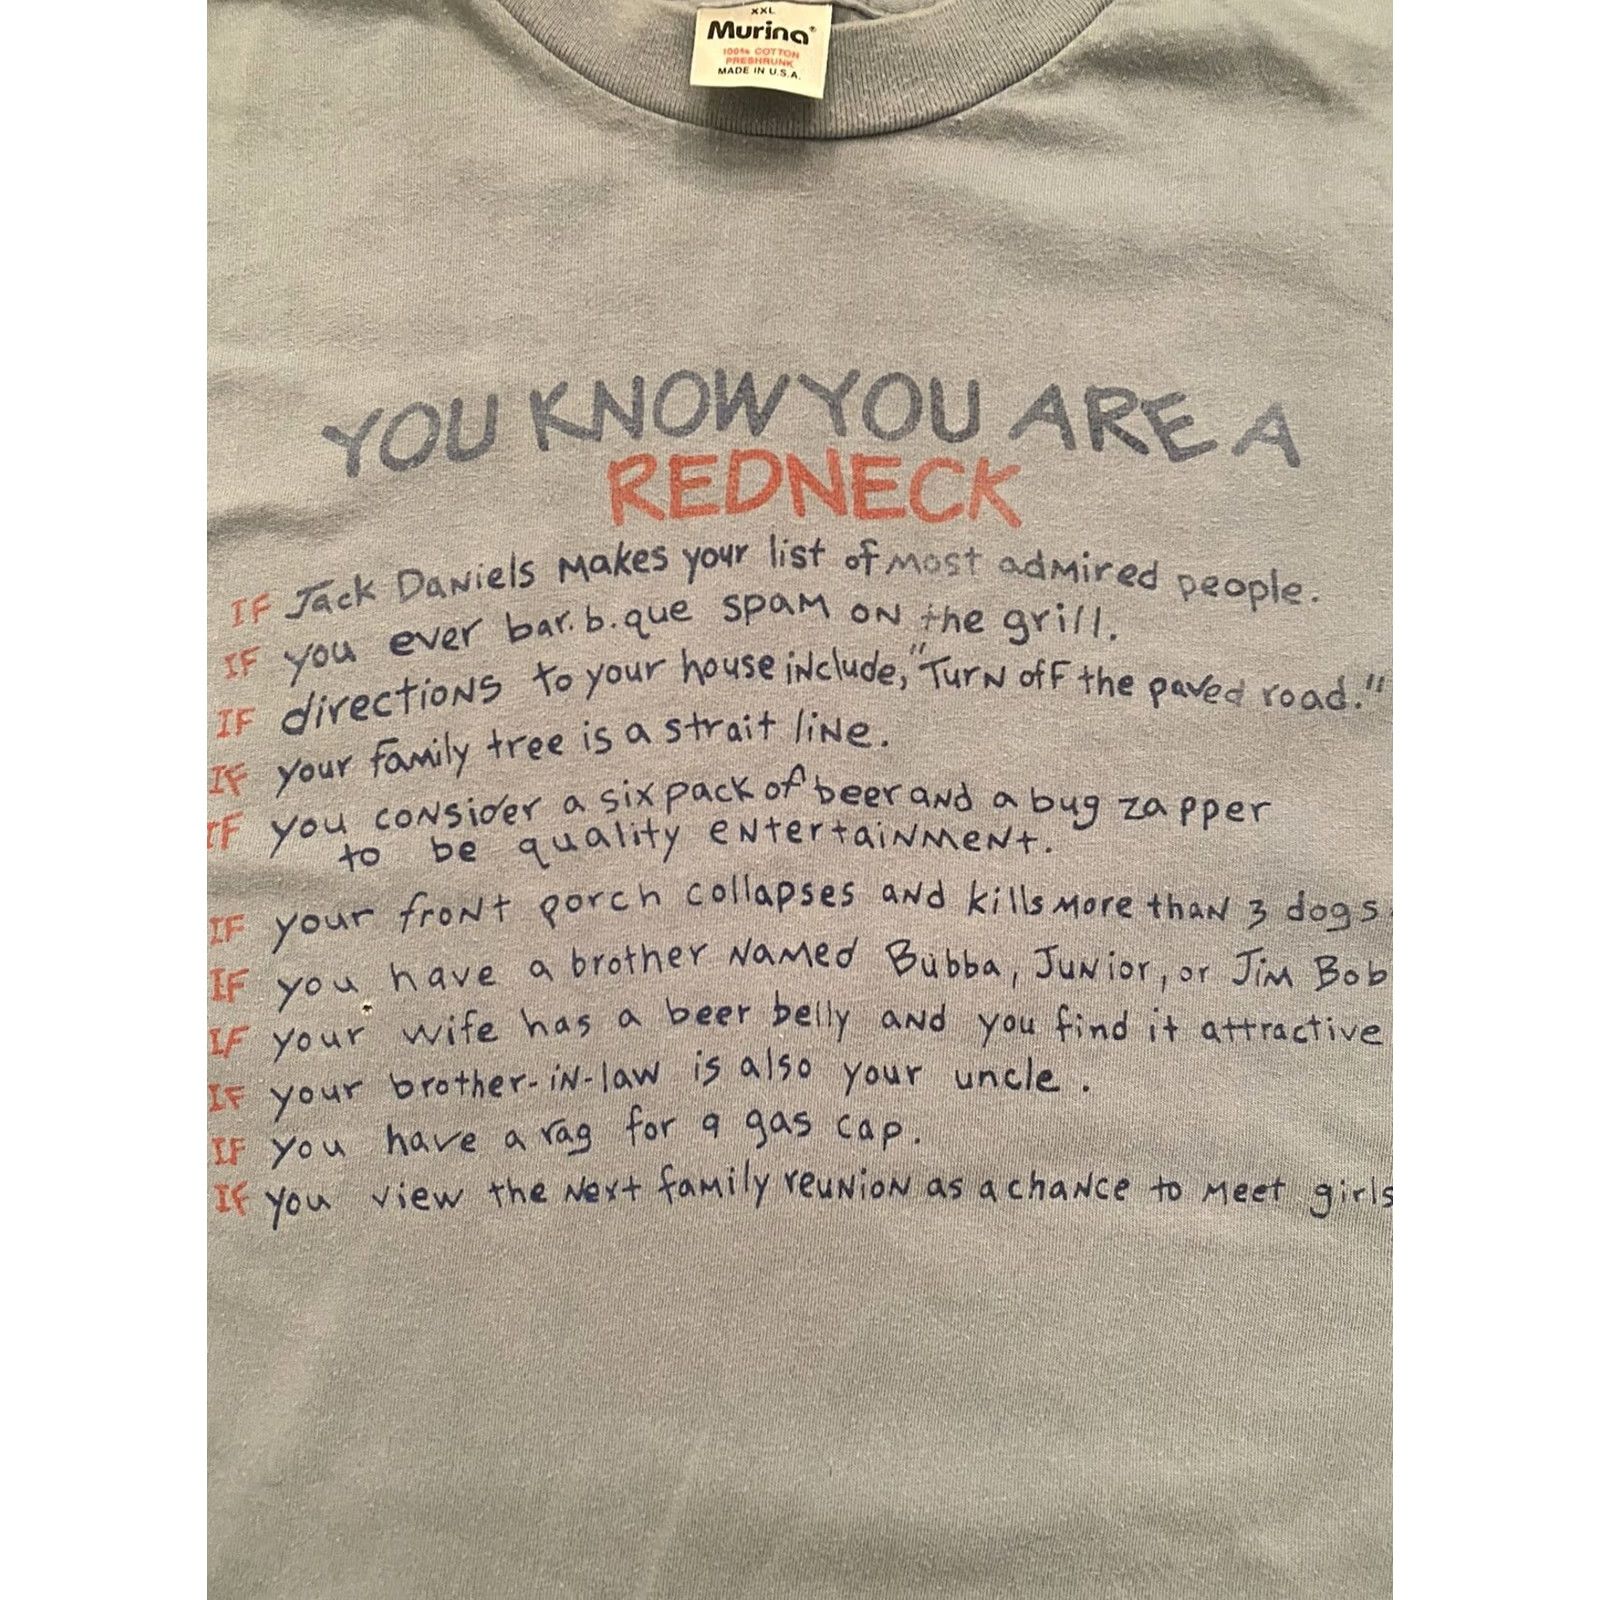 XXL
Murina®
100% COTTON
PRESHRUNK
MADE IN U.S.A.
YOU KNOW YOU ARE A
REDNECK
IF Jack Daniels makes your list of most admired people.
IF you ever bar.b.que spam on the grill.
IF directions to your house include, "Turn off the paved road."
IF your family tree is a strait line.
IF you consider a six pack of beer and a bug zapper
to be quality entertainment.
IF your front porch collapses and kills more than 3 dogs
IF you have a brother named Bubba, Junior, or Jim Bob
IF your wife has a beer belly and you find it attractive
IF your brother-in-law is also your uncle.
IF you have a rag for a gas cap.
IF you view the next family reunion as a chance to meet girls